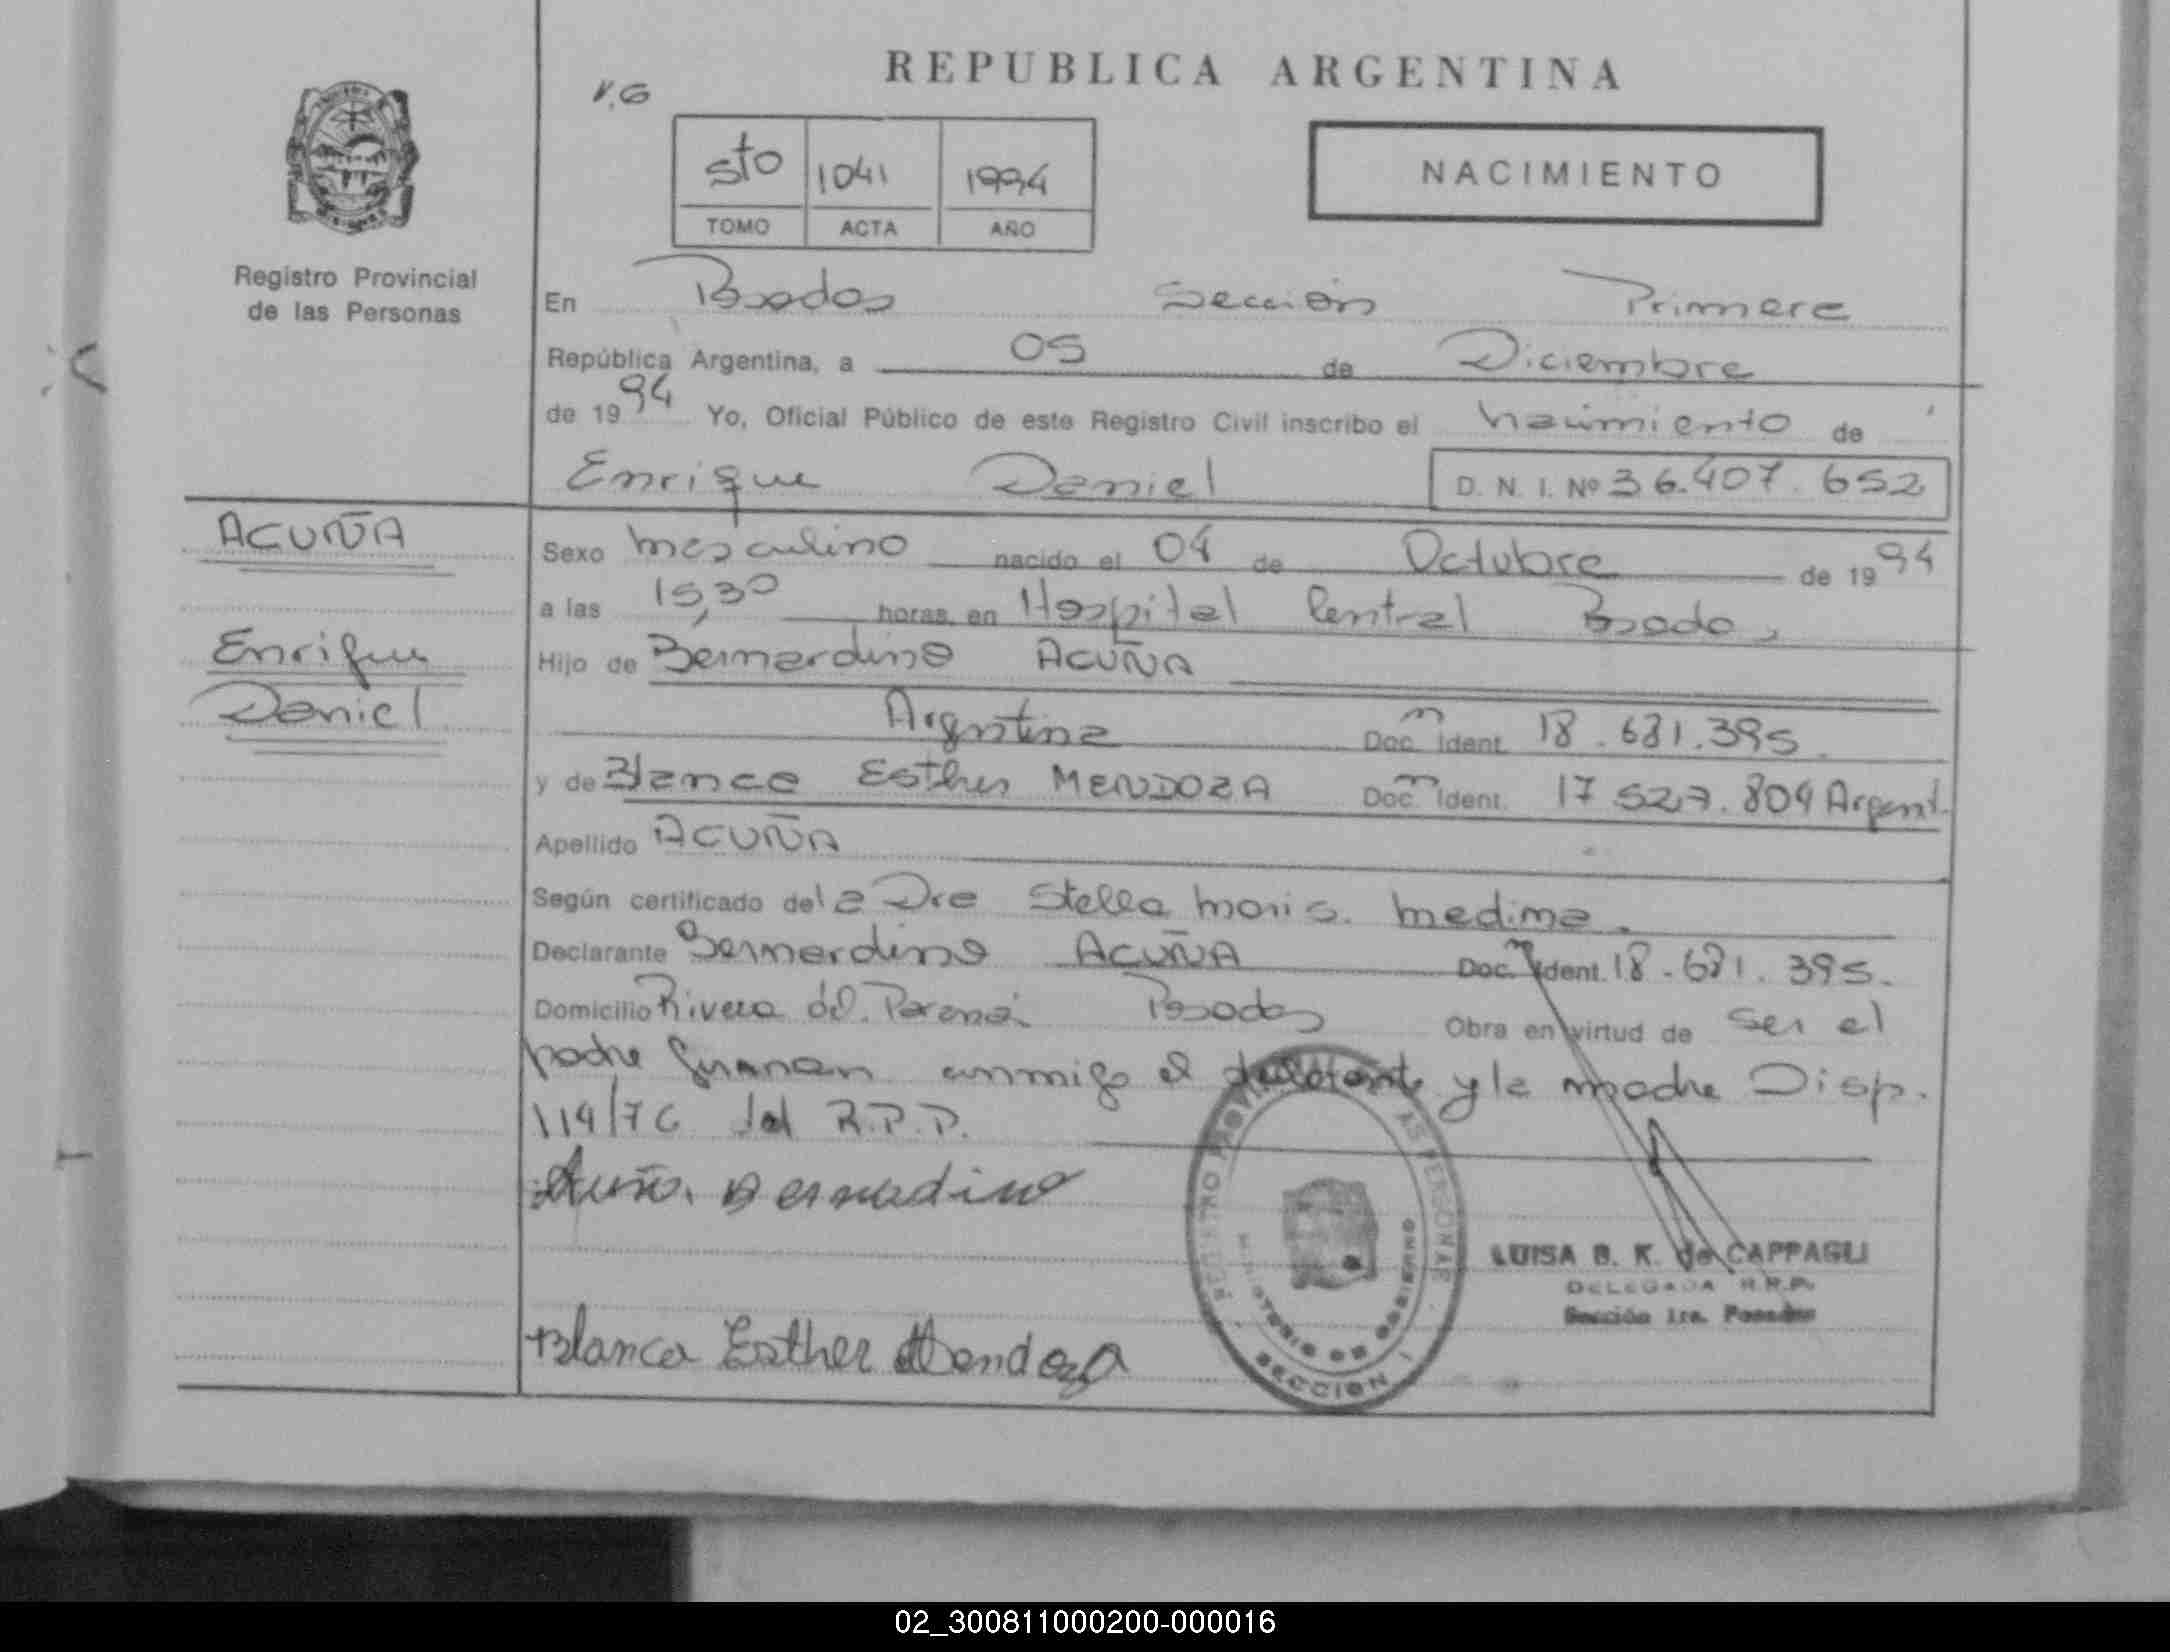 REPUBLICA ARGENTINA
V.G
5to 1041 1994
TOMO ACTA AÑO
NACIMIENTO
Registro Provincial
de las Personas
En Posadas Sección Primera
República Argentina, a 05 de Diciembre
de 1994 Yo, Oficial Público de este Registro Civil inscribo el nacimiento de
Enrique Daniel D. N. I. Nº 36.407.652
ACUÑA
Enrique
Daniel
Sexo masculino nacido el 04 de Octubre de 1994
a las 15,30 horas, en Hospital Central Posadas
Hijo de Bernardino ACUÑA
Argentina Doc. Ident. 18.681.395.
y de Blanca Esther MENDOZA Doc. Ident. 17 527.804 Argent.
Apellido ACUÑA
Según certificado del a Dra Stella Maris Medina.
Declarante Bernardino ACUÑA Doc. Ident. 18.681.395.
Domicilio Rivera del Paraná Posadas Obra en virtud de ser el
padre firman conmigo el declarante y la madre Disp.
114/76 del R.P.P.
Acuña. Bernadino
Blanca Esther Mendoza
REGISTRO PROVINCIAL DE LAS PERSONAS
MINISTERIO DE GOBIERNO
SECCION I
LUISA B. K. de CAPPAGLI
DELEGADA R.R.P.
Sección 1ra. Posadas
02_300811000200-000016